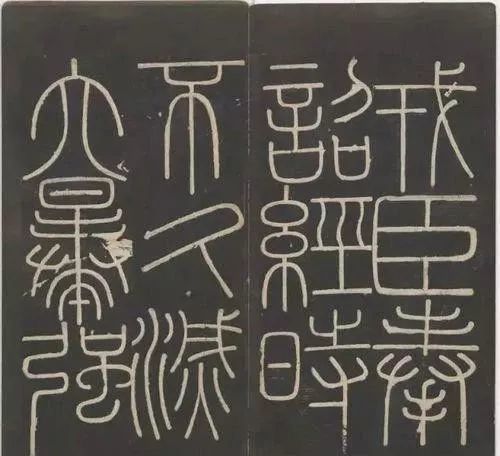 戎臣奉
詔經時
不久滅
六暴強